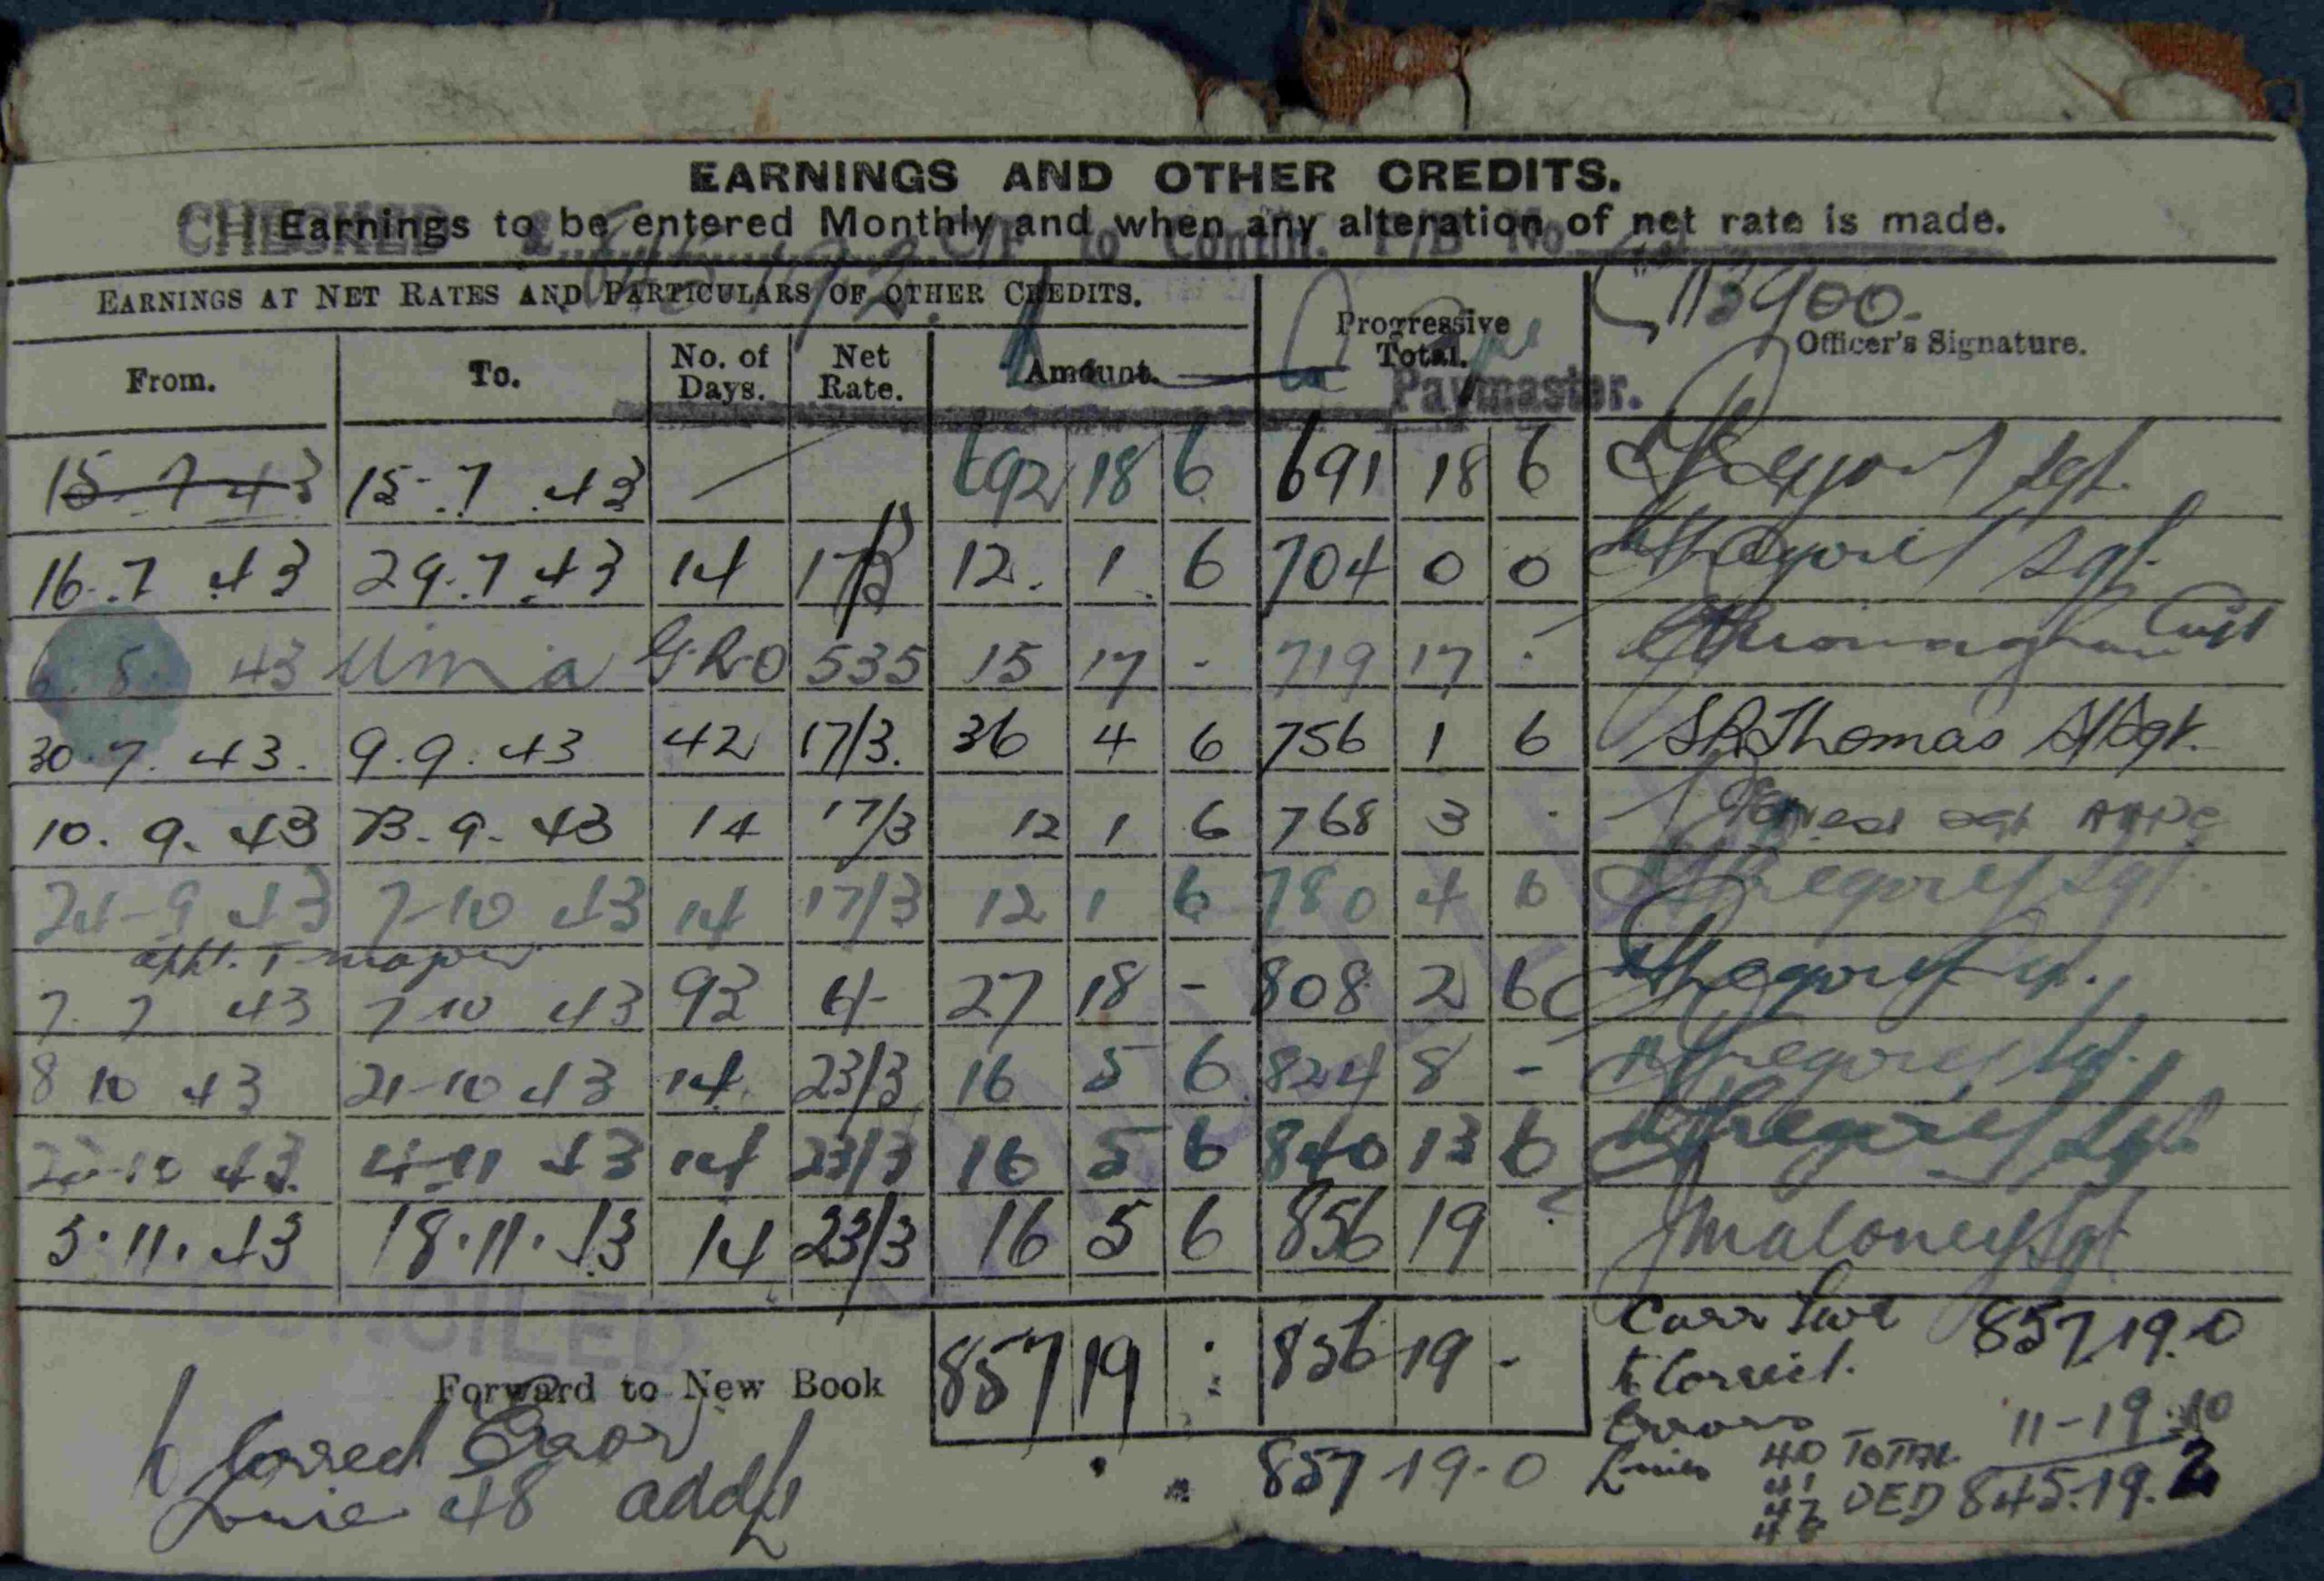 EARNINGS AND OTHER CREDITS.
Earnings to be entered Monthly and when any alteration of net rate is made.
CHECKED & C/F to Contin. P/B No.
C113900.
EARNINGS AT NET RATES AND PARTICULARS OF OTHER CREDITS. Progressive Total. Officer's Signature.
From. To. No. of Days. Net Rate. Amount.
Paymaster.
15.7 43 15.7 43 692 18 6 691 18 6 Sgt.
16.7 43 29.7 43 14 17/3 12. 1. 6 704 0 0 Sgt.
6.8. 43 G.R.O 535 15 17 - 719 17 . Capt
30.7.43. 9.9.43 42 17/3. 36 4 6 756 1 6 S.R. Thomas S/Sgt.
10.9.43 23.9.43 14 17/3 12 1 6 768 3 . Sgt AAPC
24-9 43 7-10 43 14 17/3 12 1 6 780 4 6 Sgt.
appt. T-major
7 7 43 7 10 43 93 6/- 27 18 - 808 2 6
8 10 43 21-10 43 14 23/3 16 5 6 824 8 -
22-10 43 4-11 43 14 23/3 16 5 6 840 13 6 Sgt.
5.11.43 18.11.43 14 23/3 16 5 6 856 19 . Maloney Sgt
Forward to New Book 857 19 : 856 19 -
Carr Fwd 857.19.0
to Correct.
Errors 11-19.10
Lines 40 TOTAL
41
47 DED 845.19.2
48
857-19-0
to Correct Error
Line 48 add £1